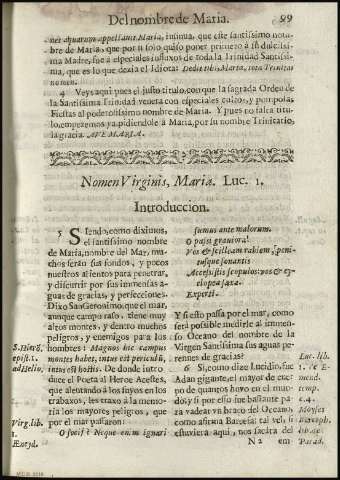 Del nombre de Maria. 99
nes aquarum appellauit Maria, insinua, que este santissimo nom-
bre de Maria, que por si solo quiso poner primero a su dulcissi-
ma Madre, fue a especiales influxos de toda la Trinidad Santissi-
ma, que es lo que dezia el Idiota: Dedit tibi Maria, tota Trinitas
nomen.
4 Veys aqui pues el justo titulo, con que la sagrada Orden de
la Santissima Trinidad venera con especiales cultos, y pomposas
Fiestas al poderosissimo nombre de Maria. Y pues no falta titu-
lo, empeçemos ya pidiendole a Maria, por su nombre Trinitario,
la gracia. AVE MARIA.
Nomen Virginis, Maria. Luc. 1.
Introduccion.
5 Siendo, como diximos,
el santissimo nombre
de Maria, nombre del Mar, mu-
chos serán sus fondos, y pocos
nuestros alientos para penetrar,
y discurrir por sus immensas a-
guas de gracias, y perfecciones.
Dixo San Geronimo que el mar,
aunque campo raso, tiene muy
altos montes, y dentro muchos
peligros, y enemigos para los
hombres: Magnos hic campus
montes habet, intus est periculũ,
intus est hostis. De donde intro-
duce el Poeta al Heroe Acestes,
que alentando à los suyos en los
trabaxos, les traxo à la memo-
ria los mayores peligros, que
por el mar passaron:
O socij! Neque enim ignari
S. Hierõ.
epist. 1.
ad Helio.
Virg. lib.
1.
Æneyd.
sumus ante malorum.
O passi grauiora!
Vos & scillæam rabiem, peni-
tusque sonantis
Accestis scopulos: vos & cy-
clopea saxa
Experti.
Y si esto passa por el mar, como
será possible medirle al immen-
so Oceano del nombre de la
Virgen Santissima sus aguas pe-
rennes de gracias?
6 Si, como dize Lucidio, fue
Adan gigante, el mayor de cuer-
po de quantos huvo en el mun-
do; y si por esso fue bastante pa-
ra vadear vn braço del Oceano,
como afirma Barcefa: tal vez, si
estuviera aqui, nos sacára del
Luc. lib.
1. de E-
mend.
temp.
c. 4.
Moyses
Barceph.
lib. de
Parad.
N 2 em